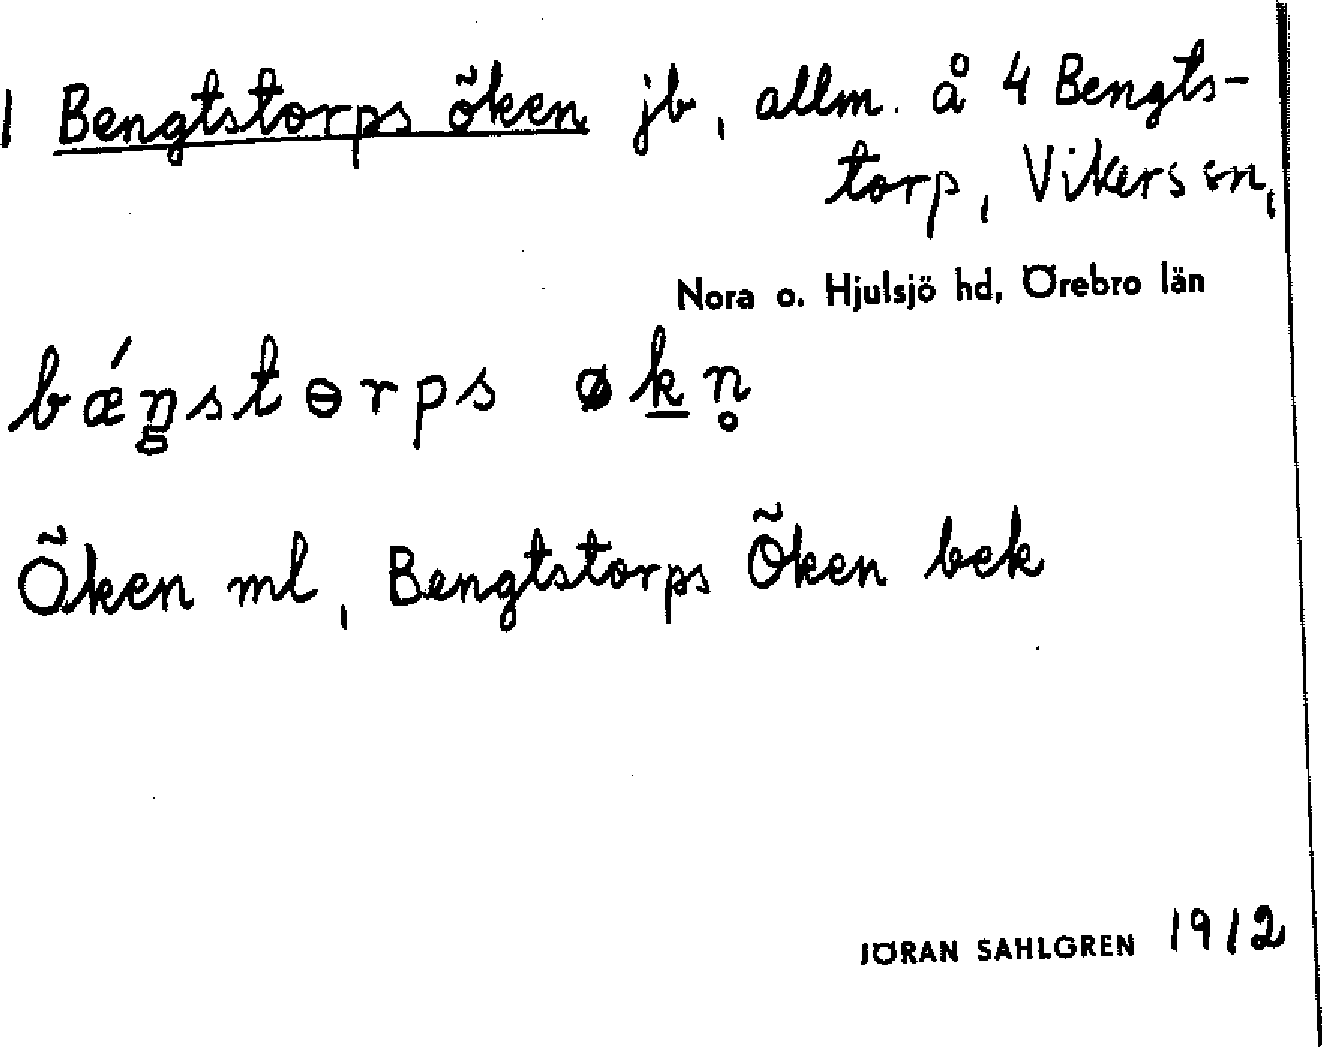 1 Bengtstorps öken jb, allm. å 4 Bengts-
torp, Vikers sn,
Nora o. Hjulsjö hd, Örebro län
bǽŋstɵrps øk̲n̥
Öken ml, Bengtstorps Öken bek
JÖRAN SAHLGREN 1912